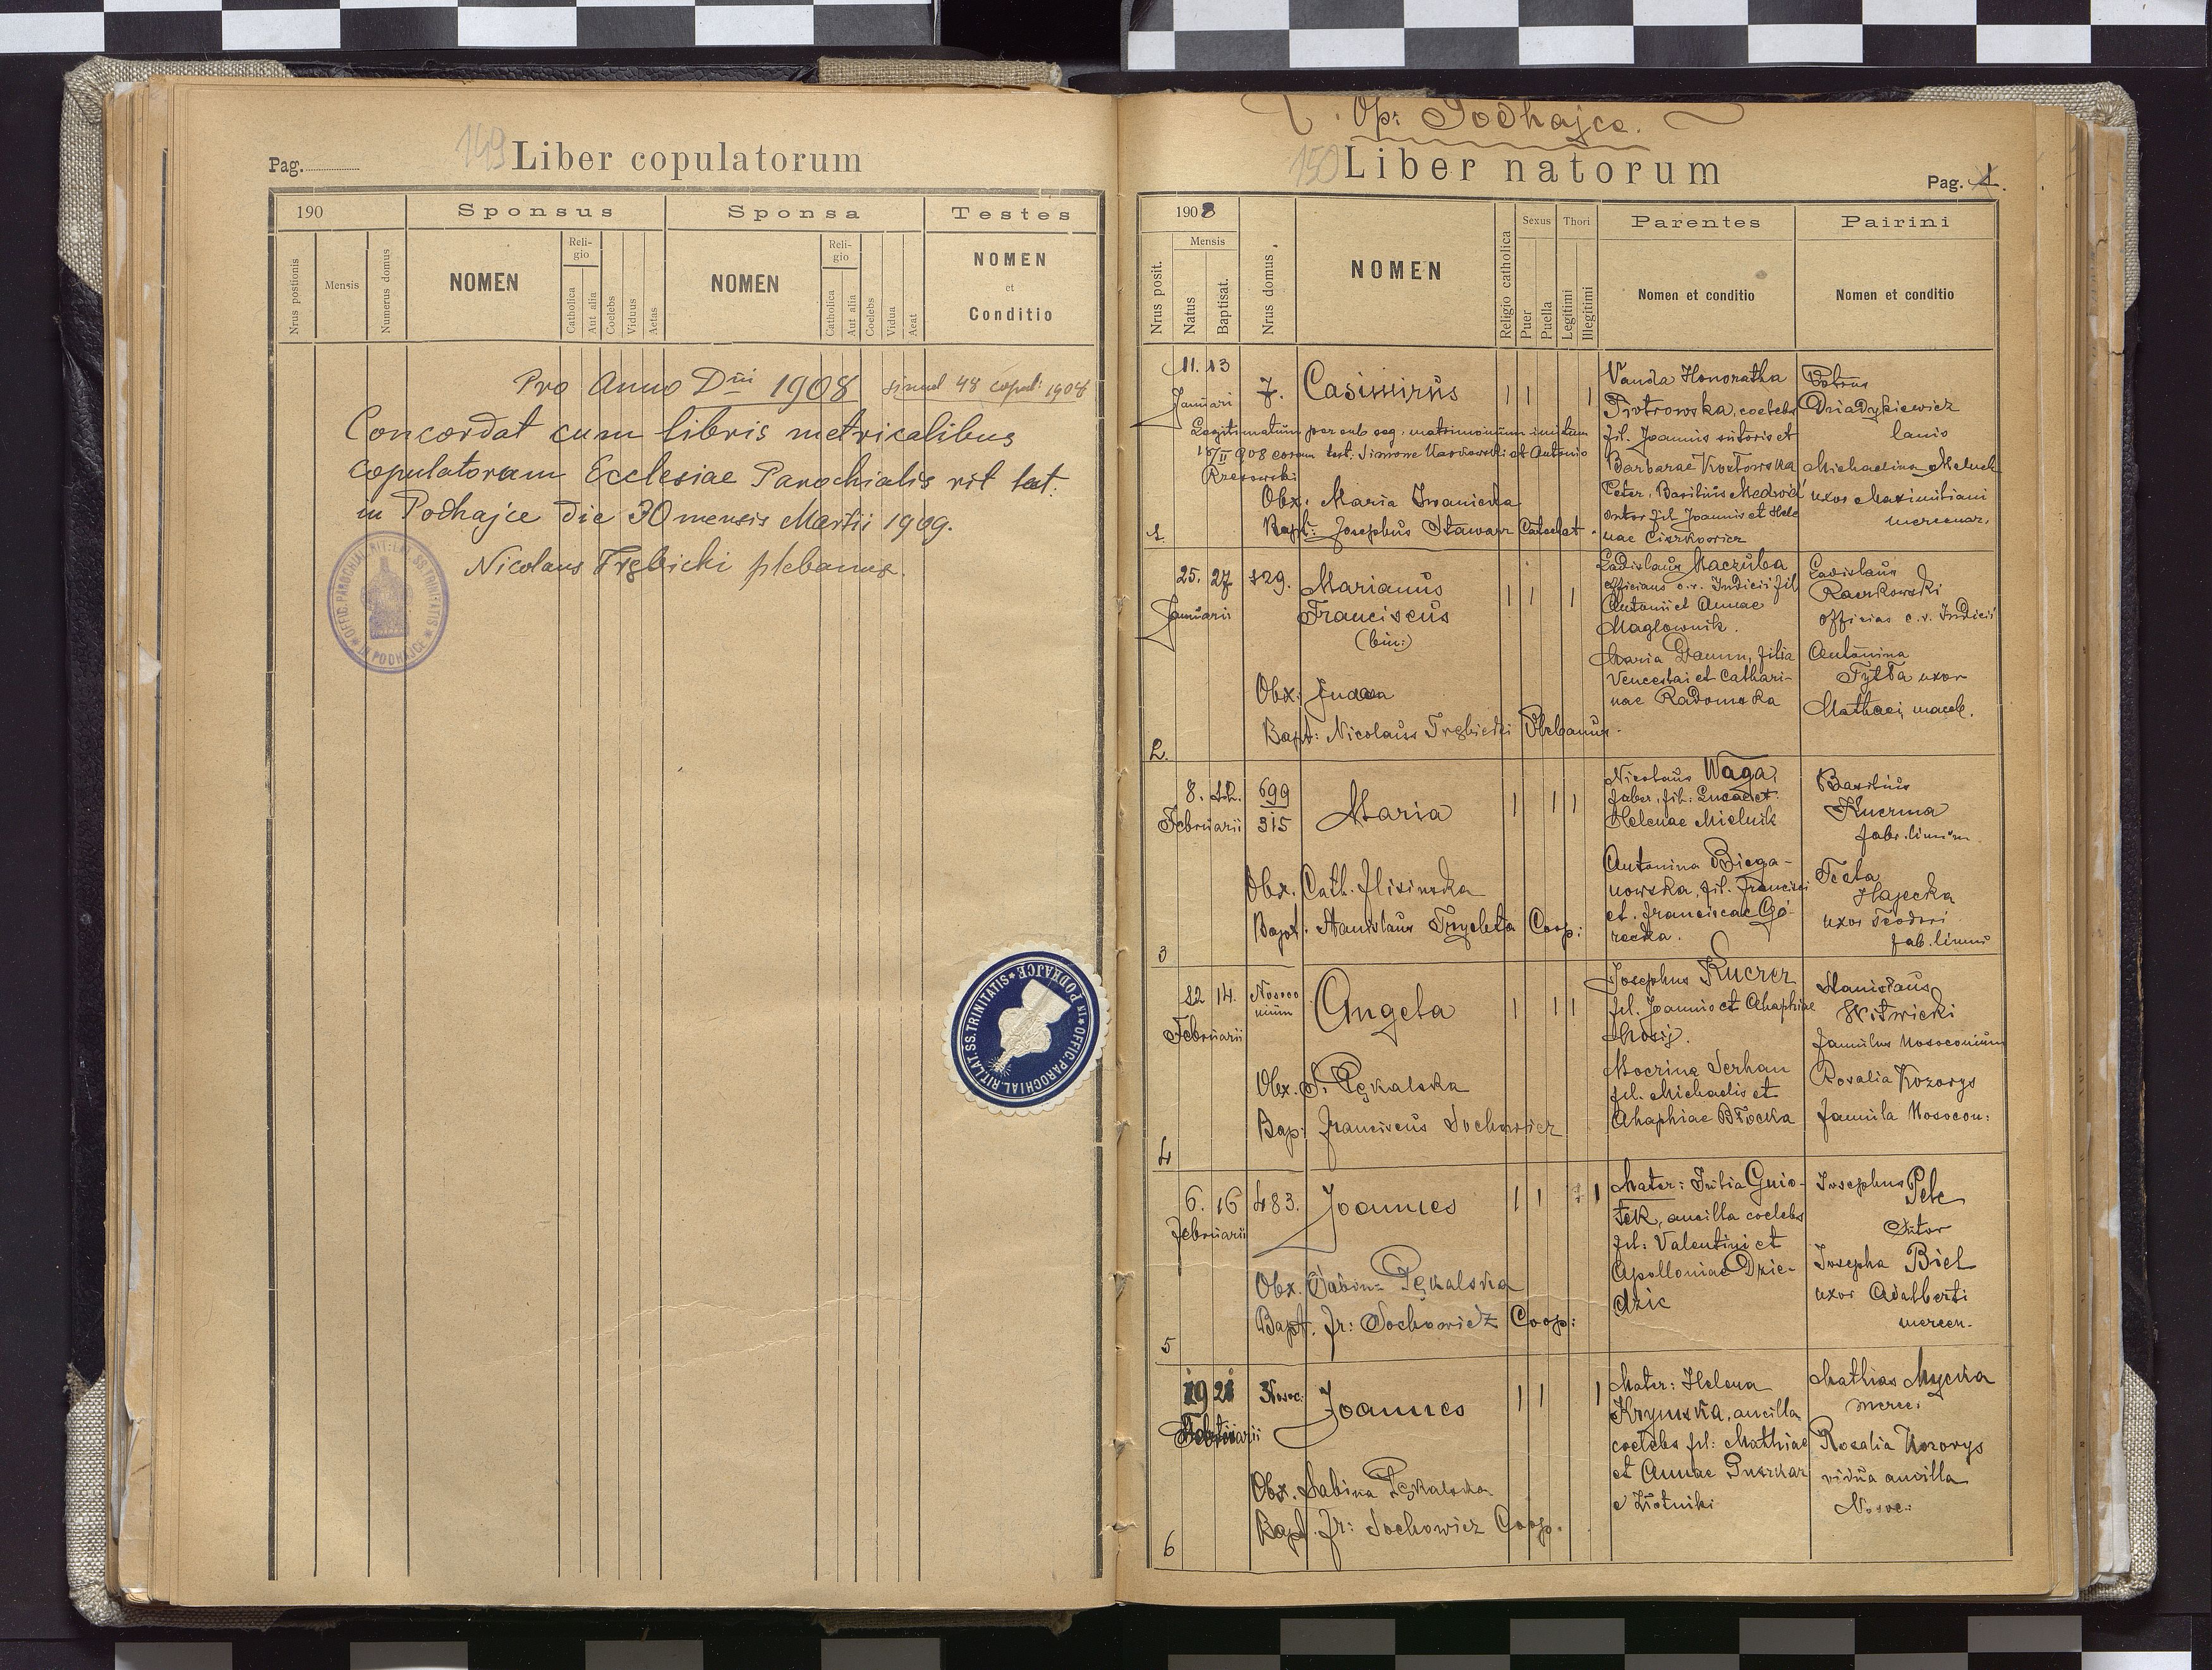 149
Pag.
Liber copulatorum
190
Sponsus
Sponsa
Testes
Nrus postionis
Mensis
Numerus domus
NOMEN
Religio
Catholica
Aut alia
Coelebs
Viduus
Aetas
NOMEN
Religio
Catholica
Aut alia
Coelebs
Vidua
Aeat
NOMEN
et
Conditio
Pro Anno Dni 1908 simul 48 copul: 1908
Concordat cum libris metricalibus
copulatorum Ecclesiae Parochialis rit lat.
in Podhajce die 30 mensis Martii 1909.
Nicolaus Trębicki plebanus.
OFFIC. PAROCHIAL. RIT. LAT. SS. TRINITATIS
IN PODHAJCE
OFFIC. PAROCHIAL. RIT. LAT. SS. TRINITATIS
IN PODHAJCE
Op: Podhajce.
150
Liber natorum
Pag. 1.
1908
Nrus posit.
Mensis
Natus
Baptisat.
Nrus domus
NOMEN
Religio catholica
Sexus
Puer
Puella
Thori
Legitimi
Illegitimi
Parentes
Nomen et conditio
Pairini
Nomen et conditio
1.
11. 13
Januari
7.
Casimirus
1 1 1
Vanda Honoratha
Piotrowska, coelebs
fil. Joannis sutoris et
Barbarae Kozłowska
Pater, Basilius Medwid
sutor fil Joannis et Hele
nae Ciszkowicz
Petrus
Dziadykiewicz
lanio
Michaelina Melnik
uxor Maximiliani
mercenar.
Legitimatum per sub seq. matrimonium initum
Rzeszowski
Obx. Maria Iwanicka
Bapt: Josephus Stawarz Catechet
2.
25. 27
Januarii
129.
Marianus
Franciscus
(bin:)
1 1 1
Ladislaus Maczuba
officians c.r. Judicii fil
Antonii et Annae
Maglownik.
Maria Daum, filia
Venceslai et Cathari-
nae Radomska
Ladislaus
Raczkowski
officias c.r. Judicii
Antonina
Tylda uxor
Mathaei, macel.
Obx:
Bapt: Nicolaus Trębicki Plebanus.
3
8. 12.
Februarii
699
315
Maria
1 1 1
Nicolaus Waga,
faber, fil: Lucae et
Helenae Mielnik
Antonina Biega-
nowska, fil. Francisci
et. Franciscae Gó-
recka.
Basilius
Kuzma
fabr. linium
Tecla
Hajecka
uxor Teodori
fab. linnii
Obx. Cath. Ilisinska
Bapt. Stanislaus Trycleta Coop:
4
12 14.
Februarii
Nosoco
mium
Angela
1 1 1
Josephus Kuczer
fil. Joannis et Ahaphiae
Mosij.
Mocrina Serhan
fil. Michaelis et
Ahaphiae Błocka
Stanislaus
Witwicki
famulus Nosocomium
Rosalia Kozorys
famula Nosocom:
Obx. S. Pękalska
Bap: Franciscus Sochowicz
5
6. 16
Februarii
483.
Joannes
1 1 1
Mater: Julia Gnio-
tek, ancilla coelebs
fil: Valentini et
Apolloniae Dzie-
dzic
Josephus Pelc
Sutor
Josepha Biel
uxor Adalberti
mercen.
Obx. Sabina Pękalska
Bapt. Fr: Sochowicz Coop:
6
19 21
Februarii
Nosoc:
Joannes
1 1 1
Mater: Helena
Krynska, ancilla
coelebs fil: Mathiae
et Annae Puszkar
e Złotniki
Mathias Mycka
merc.
Rosalia Kozorys
vidua ancilla
Nosoc:
Obx. Sabina Pękalska
Bapt. Fr: Sochowicz Coop.